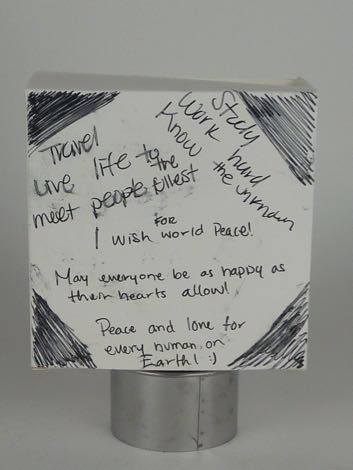 Travel
live life to the fullest
meet people
Study
work hard
Know the unknown
I wish FOR world Peace!
May everyone be as happy as
their hearts allow!
Peace and love for
every human on
Earth! :)